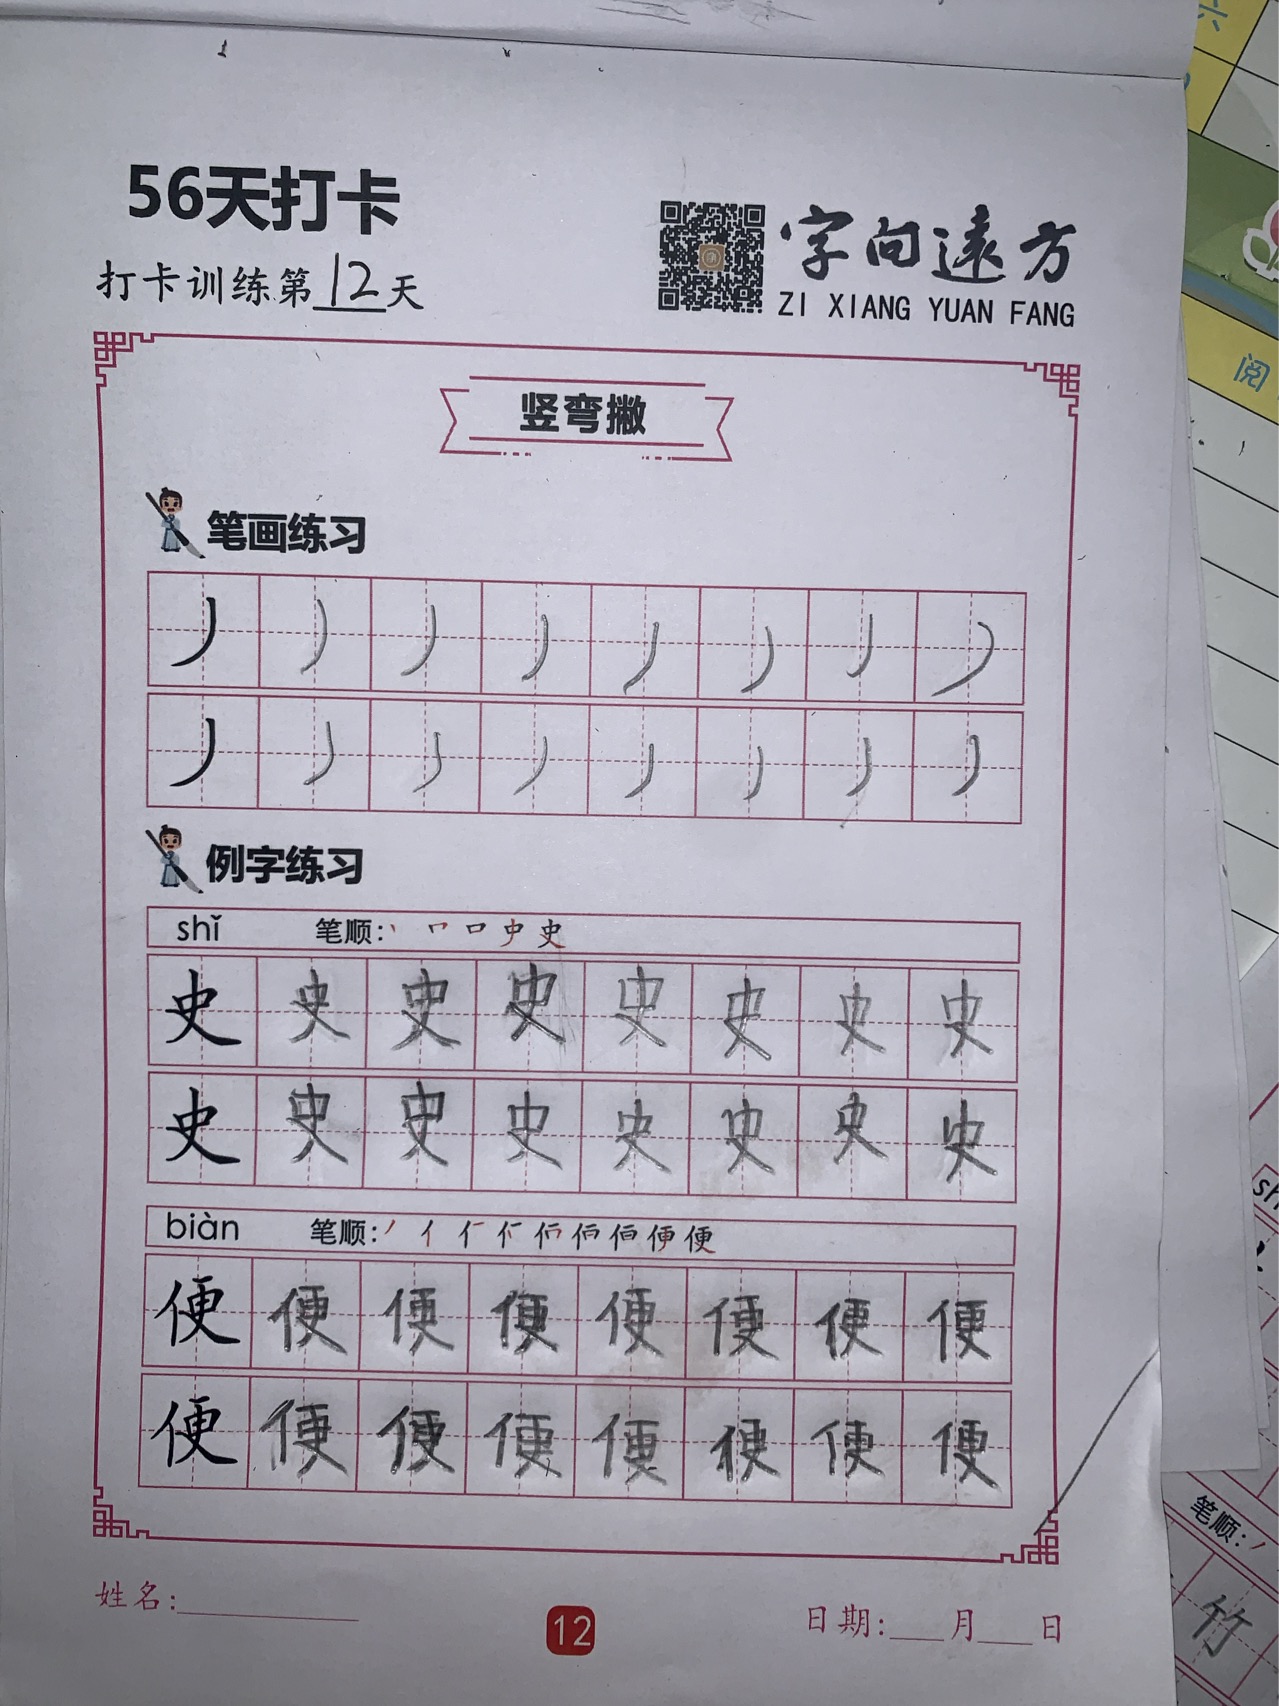 56天打卡
打卡训练第12天
字向遠方
ZI XIANG YUAN FANG
竖弯撇
笔画练习
丿 丿 丿 丿 丿 丿 丿 丿
丿 丿 丿 丿 丿 丿 丿 丿
例字练习
shǐ 笔顺: 史
史 史 史 史 史 史 史 史
史 史 史 史 史 史 史 史
biàn 笔顺: 便
便 便 便 便 便 便 便 便
便 便 便 便 便 便 便 便
姓名:
12
日期: 月 日
六
阅
sh
笔顺:
竹